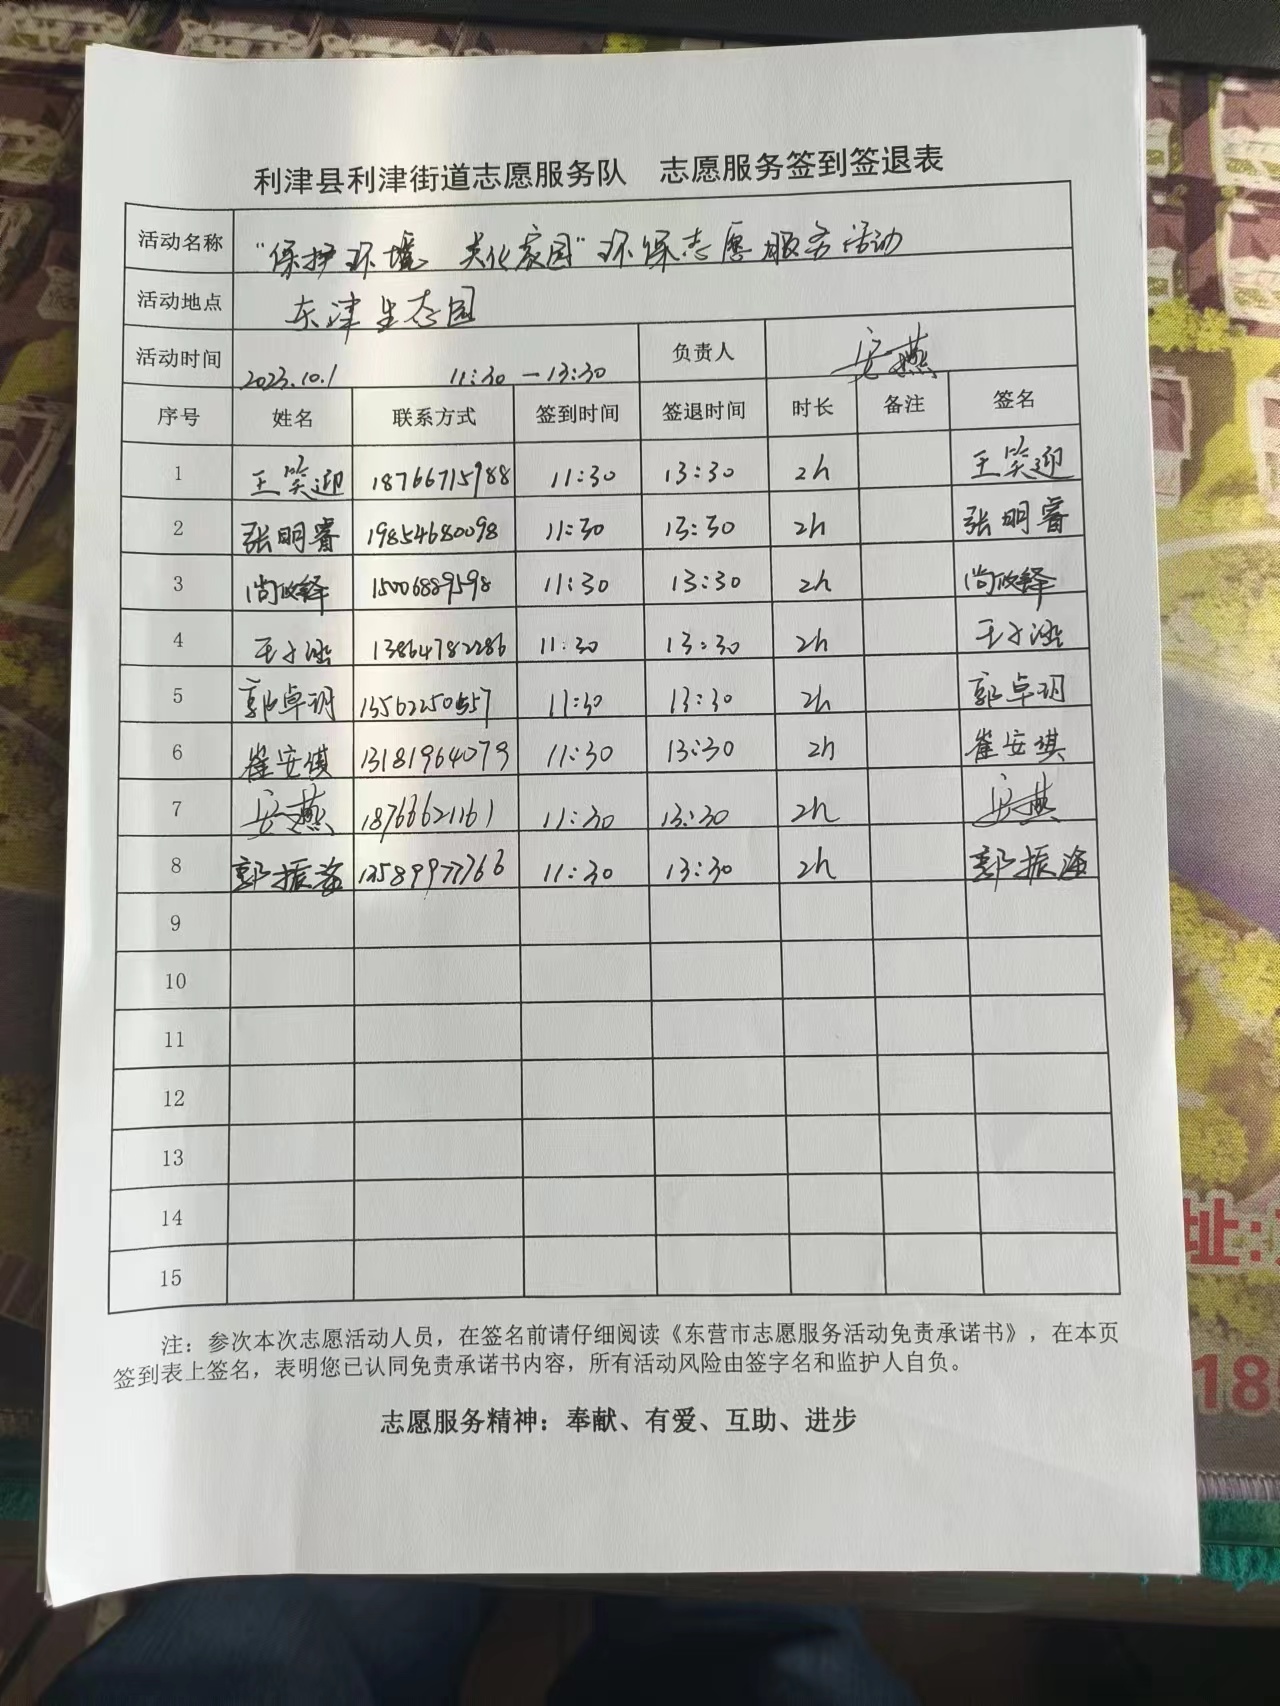 利津县利津街道志愿服务队 志愿服务签到签退表
活动名称 “保护环境 美化家园”环保志愿服务活动
活动地点 东津生态园
活动时间 2023.10.1 11:30—13:30 负责人 安燕
序号 姓名 联系方式 签到时间 签退时间 时长 备注 签名
1 王笑迎 18766715988 11:30 13:30 2h 王笑迎
2 张明睿 19854680098 11:30 13:30 2h 张明睿
3 尚 15006889598 11:30 13:30 2h 尚
4 王子涵 13864782286 11:30 13:30 2h 王子涵
5 郭卓玥 11:30 13:30 2h 郭卓玥
6 崔安琪 13181964079 11:30 13:30 2h 崔安琪
7 安燕 18766621161 11:30 13:30 2h 安燕
8 郭振海 13589977766 11:30 13:30 2h 郭振海
9
10
11
12
13
14
15
注：参次本次志愿活动人员，在签名前请仔细阅读《东营市志愿服务活动免责承诺书》，在本页
签到表上签名，表明您已认同免责承诺书内容，所有活动风险由签字名和监护人自负。
志愿服务精神：奉献、有爱、互助、进步
址:
18